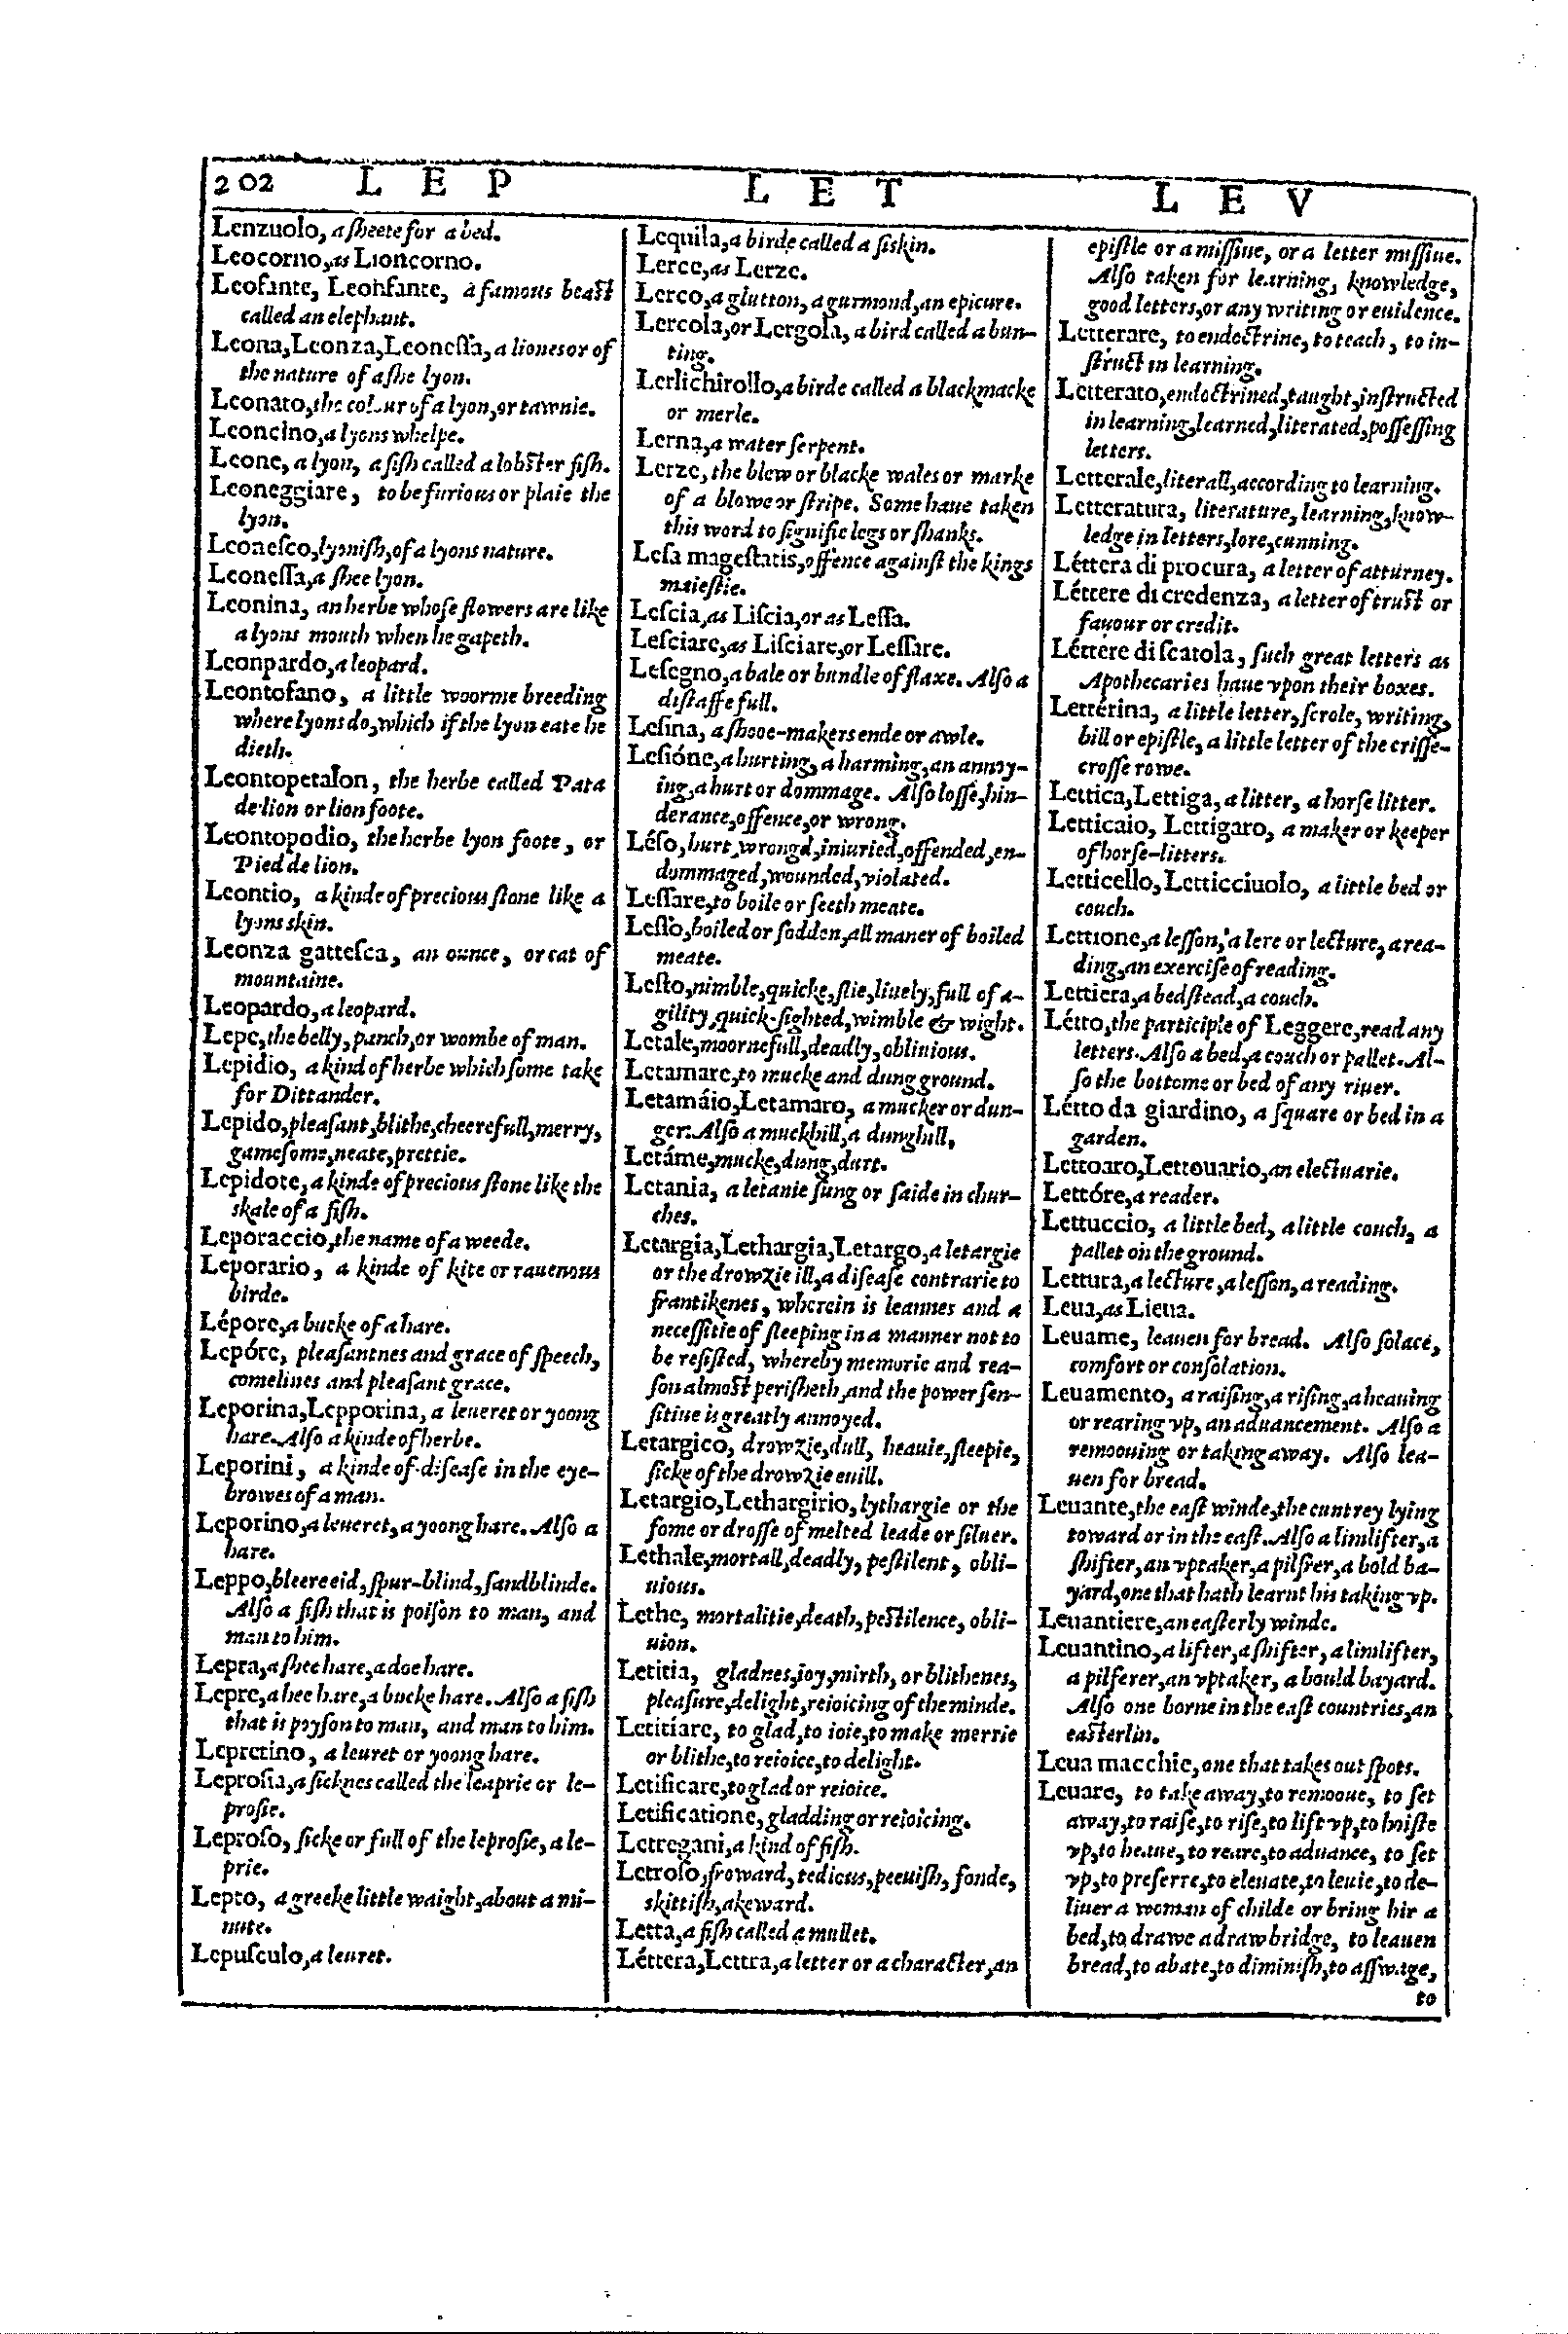 202 L E P L E T L E V
Lenzuolo, a ſheete for a bed.
Leocorno, as Lioncorno.
Leofante, Leonfante, a famous beaſt
called an elephant.
Leona, Leonza, Leoneſſa, a lioneſ or of
the nature of a ſhe lyon.
Leonato, the colour of a lyon, or tawnie.
Leoncino, a lyons whelpe.
Leone, a lyon, a fiſh called a lobſter fiſh.
Leoneggiare, to be furious or plaie the
lyon.
Leoneſco, lyoniſh, of a lyons nature.
Leoneſſa, a ſhee lyon.
Leonina, an herbe whoſe flowers are like
a lyons mouth when he gapeth.
Leonpardo, a leopard.
Leontofano, a little woorme breeding
where lyons do, which if the lyon eate he
dieth.
Leontopetalon, the herbe called Pata
de lion or lion foote.
Leontopodio, the herbe lyon foote, or
Pied de lion.
Leontio, a kinde of precious ſtone like a
lyons skin.
Leonza gatteſca, an ounce, or cat of
mountaine.
Leopardo, a leopard.
Lepe, the belly, panch, or wombe of man.
Lepidio, a kind of herbe which ſome take
for Dittander.
Lepido, pleaſant, blithe, cheerefull, merry,
gameſome, neate, prettie.
Lepidote, a kinde of precious ſtone like the
skale of a fiſh.
Leporaccio, the name of a weede.
Leporario, a kinde of kite or rauenous
birde.
Lépore, a bucke of a hare.
Lepóre, pleaſantnes and grace of ſpeech,
comelines and pleaſant grace.
Leporina, Lepporina, a leueret or yoong
hare. Alſo a kinde of herbe.
Leporini, a kinde of diſeaſe in the eye-
browes of a man.
Leporino, a leueret, a yoong hare. Alſo a
hare.
Leppo, bleereeid, ſpur-blind, ſandblinde.
Alſo a fiſh that is poiſon to man, and
man to him.
Lepra, a ſhee hare, a doe hare.
Lepre, a hee hare, a bucke hare. Alſo a fiſh
that is poyſon to man, and man to him.
Lepretino, a leuret or yoong hare.
Leproſia, a ſicknes called the leaprie or le-
proſie.
Leproſo, ſicke or full of the leproſie, a le-
prie.
Lepto, a greeke little waight, about a mi-
nute.
Lepuſculo, a leuret.
Lequila, a birde called a ſiskin.
Lerce, as Lerze.
Lerco, a glutton, a gurmond, an epicure.
Lercola, or Lergola, a bird called a bun-
ting.
Lerlichirollo, a birde called a blackmacke
or merle.
Lerna, a water ſerpent.
Lerze, the blew or blacke wales or marke
of a blowe or ſtripe. Some haue taken
this word to ſignifie legs or ſhanks.
Leſa mageſtatis, offence againſt the kings
maieſtie.
Leſcia, as Liſcia, or as Leſſa.
Leſciare, as Liſciare, or Leſſare.
Leſegno, a bale or bundle of flaxe. Alſo a
diſtaffe full.
Leſina, a ſhooe-makers ende or awle.
Leſióne, a hurting, a harming, an annoy-
ing, a hurt or dommage. Alſo loſſe, hin-
derance, offence, or wrong.
Léſo, hurt, wrongd, iniuried, offended, en-
dommaged, wounded, violated.
Leſſare, to boile or ſeeth meate.
Leſſo, boiled or ſodden, all maner of boiled
meate.
Leſto, nimble, quicke, ſlie, liuely, full of a-
gility, quick-ſighted, wimble & wight.
Letale, moornefull, deadly, obliuious.
Letamare, to mucke and dung ground.
Letamáio, Letamaro, a mucker or dun-
ger. Alſo a muckhill, a dunghill.
Letáme, mucke, dung, durt.
Letania, a letanie ſung or ſaide in chur-
ches.
Letargia, Lethargia, Letargo, a letargie
or the drowzie ill, a diſeaſe contrarie to
frantikenes, wherein is leannes and a
neceſſitie of ſleeping in a manner not to
be reſiſted, whereby memorie and rea-
ſon almoſt periſheth, and the power ſen-
ſitiue is greatly annoyed.
Letargico, drowzie, dull, heauie, ſleepie,
ſicke of the drowzie euill.
Letargio, Lethargirio, lythargie or the
fome or droſſe of melted leade or ſiluer.
Lethale, mortall, deadly, peſtilent, obli-
uious.
Lethe, mortalitie, death, peſtilence, obli-
uion.
Letitia, gladnes, ioy, mirth, or blithenes,
pleaſure, delight, reioicing of the minde.
Letitiare, to glad, to ioie, to make merrie
or blithe, to reioice, to delight.
Letificare, to glad or reioice.
Letificatione, gladding or reioicing.
Letregani, a kind of fiſh.
Letroſo, froward, tedious, peeuiſh, fonde,
skittiſh, akeward.
Letta, a fiſh called a mullet.
Léttera, Lettra, a letter or a character, an
epiſtle or a miſſiue, or a letter miſſiue.
Alſo taken for learning, knowledge,
good letters, or any writing or euidence.
Letterare, to endoctrine, to teach, to in-
ſtruct in learning.
Letterato, endoctrined, taught, inſtructed
in learning, learned, literated, poſſeſſing
letters.
Letterale, literall, according to learning.
Letteratura, literature, learning, know-
ledge in letters, lore, cunning.
Léttera di procura, a letter of atturney.
Léttere di credenza, a letter of truſt or
fauour or credit.
Léttere di ſcatola, ſuch great letters as
Apothecaries haue vpon their boxes.
Lettérina, a little letter, ſcrole, writing,
bill or epiſtle, a little letter of the criſſe-
croſſe rowe.
Lettica, Lettiga, a litter, a horſe litter.
Letticaio, Lettigaro, a maker or keeper
of horſe-litters.
Letticello, Letticciuolo, a little bed or
couch.
Lettione, a leſſon, a lere or lecture, a rea-
ding, an exerciſe of reading.
Lettiera, a bedſtead, a couch.
Létto, the participle of Leggere, read any
letters. Alſo a bed, a couch or pallet. Al-
ſo the bottome or bed of any riuer.
Létto da giardino, a ſquare or bed in a
garden.
Lettoaro, Lettouario, an electuarie.
Lettóre, a reader.
Lettuccio, a little bed, a little couch, a
pallet on the ground.
Lettura, a lecture, a leſſon, a reading.
Leua, as Lieua.
Leuame, leauen for bread. Alſo ſolace,
comfort or conſolation.
Leuamento, a raiſing, a riſing, a heauing
or rearing vp, an aduancement. Alſo a
remoouing or taking away. Alſo lea-
uen for bread.
Leuante, the eaſt winde, the cuntrey lying
toward or in the eaſt. Alſo a limlifter, a
ſhifter, an vptaker, a pilfrer, a bold ba-
yard, one that hath learnt his taking vp.
Leuantiere, an eaſterly winde.
Leuantino, a lifter, a ſhifter, a limlifter,
a pilferer, an vptaker, a bould bayard.
Alſo one borne in the eaſt countries, an
eaſterlin.
Leua macchie, one that takes out ſpots.
Leuare, to take away, to remooue, to ſet
away, to raiſe, to riſe, to lift vp, to hoiſte
vp, to heaue, to reare, to aduance, to ſet
vp, to preferre, to eleuate, to leuie, to de-
liuer a woman of childe or bring hir a
bed, to drawe a draw bridge, to leauen
bread, to abate, to diminiſh, to aſſwage,
to